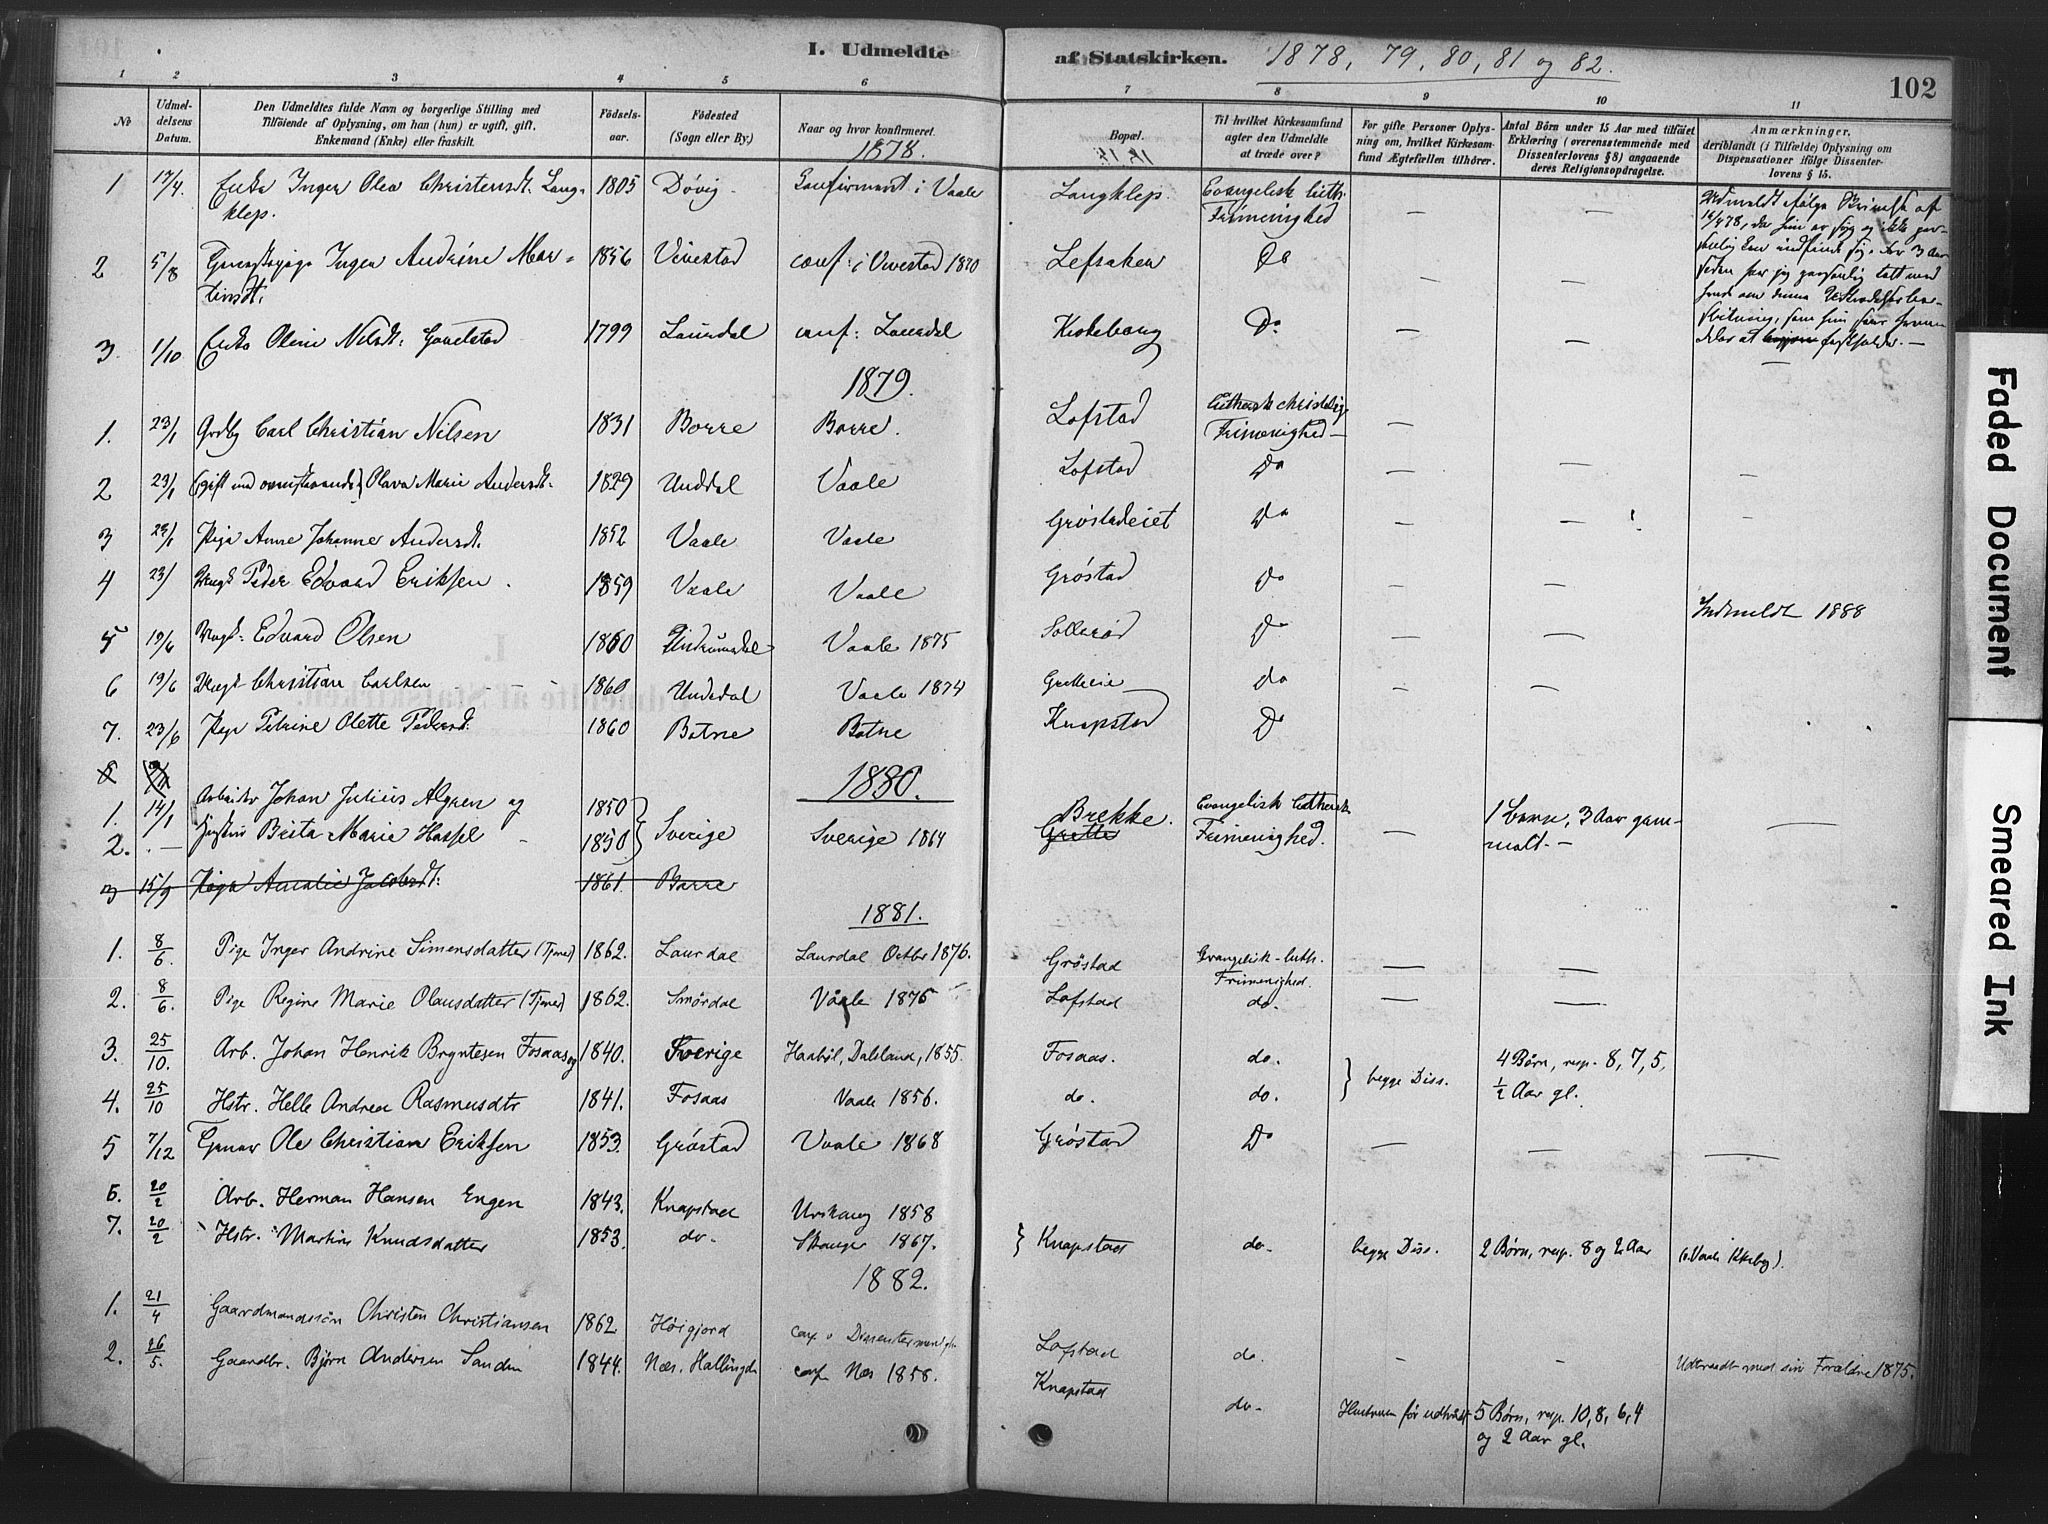 I. Udmeldte af Statskirken. 1878, 79, 80, 81 og 82.
102
1 2 3 4 5 6 7 8 9 10 11
No
Udmeldelsens Datum.
Den Udmeldtes fulde Navn og borgerlige Stilling med Tilföiende af Oplysning, om han (hun) er ugift, gift, Enkemand (Enke) eller fraskilt.
Födselsaar.
Födested (Sogn eller By.)
Naar og hvor konfirmeret.
Bopæl.
Til hvilket Kirkesamfund agter den Udmeldte at træde over?
For gifte Personer Oplysning om, hvilket Kirkesamfund Ægtefællen tilhörer.
Antal Börn under 15 Aar med tilföiet Erklæring (overensstemmende med Dissenterlovens § 8) angaaende deres Religionsopdragelse.
Anmærkninger, deriblandt (i Tilfælde) Oplysning om Dispensationer ifölge Dissenterlovens § 15.
1878.
1 17/4. Enke Inger Olea Christensdt. Langklep. 1805 Døvig Confirmeret i Vaale Langklep. Evangelisk luth. Frimenighed — —
2 5/8 Inger Andrine Martinsdt. 1856 Vivestad conf: i Vivestad 1870 Lefsaker Do — —
3. 1/10 Enke Olerie Nilsdt. Gavelstad 1799 Laurdal conf: Laurdal Kirkeborg Do — — —
1879.
1. 23/1 Carl Christian Nilsen 1831 Borre Borre. Lofstad Luthersk christelig Frimenighed — — —
2 23/1 (gift med ovenstaaende) Olava Marie Andersdt. 1829 Unddal Vaale Lofstad Do — — —
3 23/1 Pige Anne Johanne Andersdt. 1852 Vaale Vaale Grøstadeiet Do — — —
4 23/1 Ungk. Peder Edvard Eriksen. 1859 Vaale Vaale Grøstad Do — —
Indmeldt 1888
5 19/6 Ungk: Edvard Olsen 1860 Undrumsdal Vaale 1875 Sollerød Do — —
6 19/6 Ungk Christian Carlsen 1860 Undsdal Vaale 1874 Gretteeie do — —
7. 23/6 Pige Petrine Olette Pedersdt. 1860 Botne Botne Knapstad Do
1880.
1. 14/1 Arbeider Johan Julius Algren og 1850
2. — Hustru Brita Marie Hassel 1850 Sverige Sverige 1864 Brekke. Grette Evangelisk luthersk Frimenighed. — 1 barn, 3 Aar gammalt. — —
3 15/9 Pige Amalie Jacobsdt. 1861. Borre
1881.
1. 8/6. Pige Inger Andrine Simensdatter (Tjener) 1862. Laurdal Laurdal Octbr 1876. Grøstad Evangelisk-luth. Frimenighed. — —
2. 8/6. Pige Regine Marie Olausdatter (Tjener) 1862. Smørdal Vaale 1876 Lofstad do. — —
3. 25/10. Arb. Johan Henrik Bryntesen Fosaas og 1840. Sverige Haabøl, Dalsland, 1855. Fosaas. do. begge Diss. 4 Børn, resp. 8, 7, 5, 1/2 Aar gl.
4. 25/10 Hstr. Helle Andrea Rasmusdtr 1841. Fosaas Vaale 1856. do. do.
5 7/12 Ole Christian Eriksen 1853. Grøstad Vaale 1868 Grøstad Do — — —
6. 20/2 Arb. Herman Hansen Engen 1843. Knapstad Urskoug 1858
7. 20/2 Hstr. Martine Knudsdatter 1853. do. Skouger 1867. Knapstad do. begge Diss. 2 Børn, resp. 8 og 2 Aar
1882.
1. 21/4 Gaardmandssøn Christen Christiansen 1862. Høigjord Lofstad do. — — Udtraadt med sin Forældre 1875.
2. 26/5. Gaardbr. Bjørn Andersen Sanden 1844. Næs, Hallingd. conf. Næs 1858. Knapstad do. Hustruen før udtrådt 5 Børn, resp. 10, 8, 6, 4 og 2 Aar gl.
Faded Document
Smeared Ink